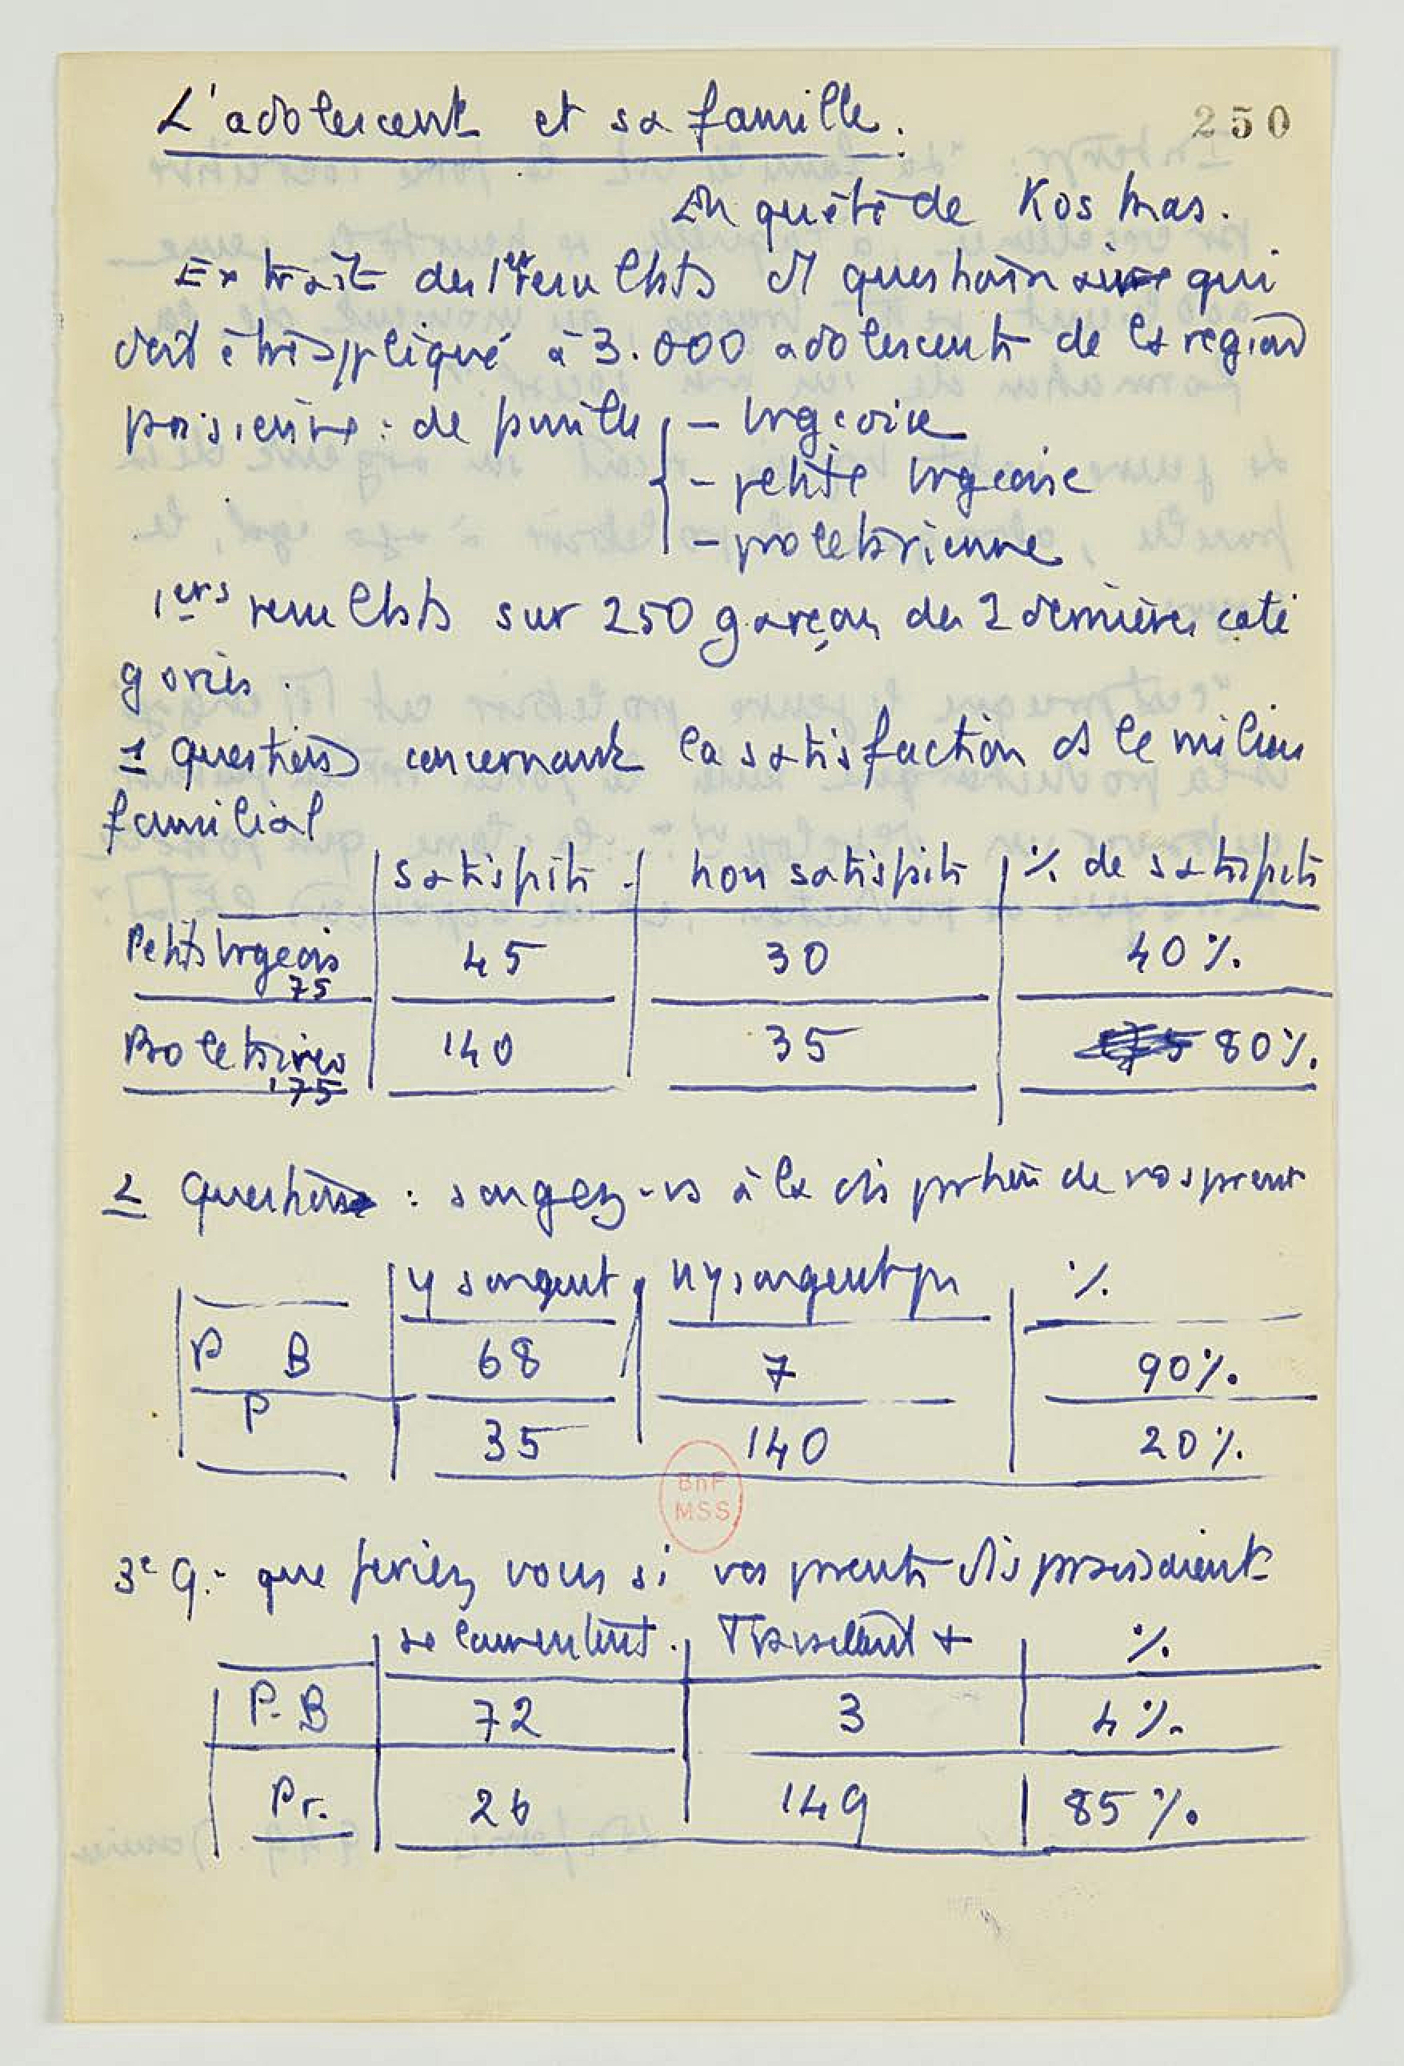 L'adolescent et sa famille.
250
Enquête de Kosmas.
Extrait des 1ers resultats d'1 questionnaire qui
doit être appliqué à 3.000 adolescents de la région
parisienne : de famille - brgeoise
- petite brgeoise
- proletarienne
1ers resultats sur 250 garçons des 2 dernières caté
gories.
1 question concernant la satisfaction ds le milieu
familial
satisfaits non satisfaits % de satisfaits
Petits brgeois 75 45 30 40%.
Proletaires 175 140 35 80%.
2 Question : songez-vs à la disparition de vos parents
y songent n'y songent pas %.
P B 68 7 90%.
P 35 140 20%.
BnF
MSS
3e Q.- que feriez vous si vos parents disparaissaient
se lamentent. Travaillent + %.
P.B 72 3 4%.
Pr. 26 149 85%.